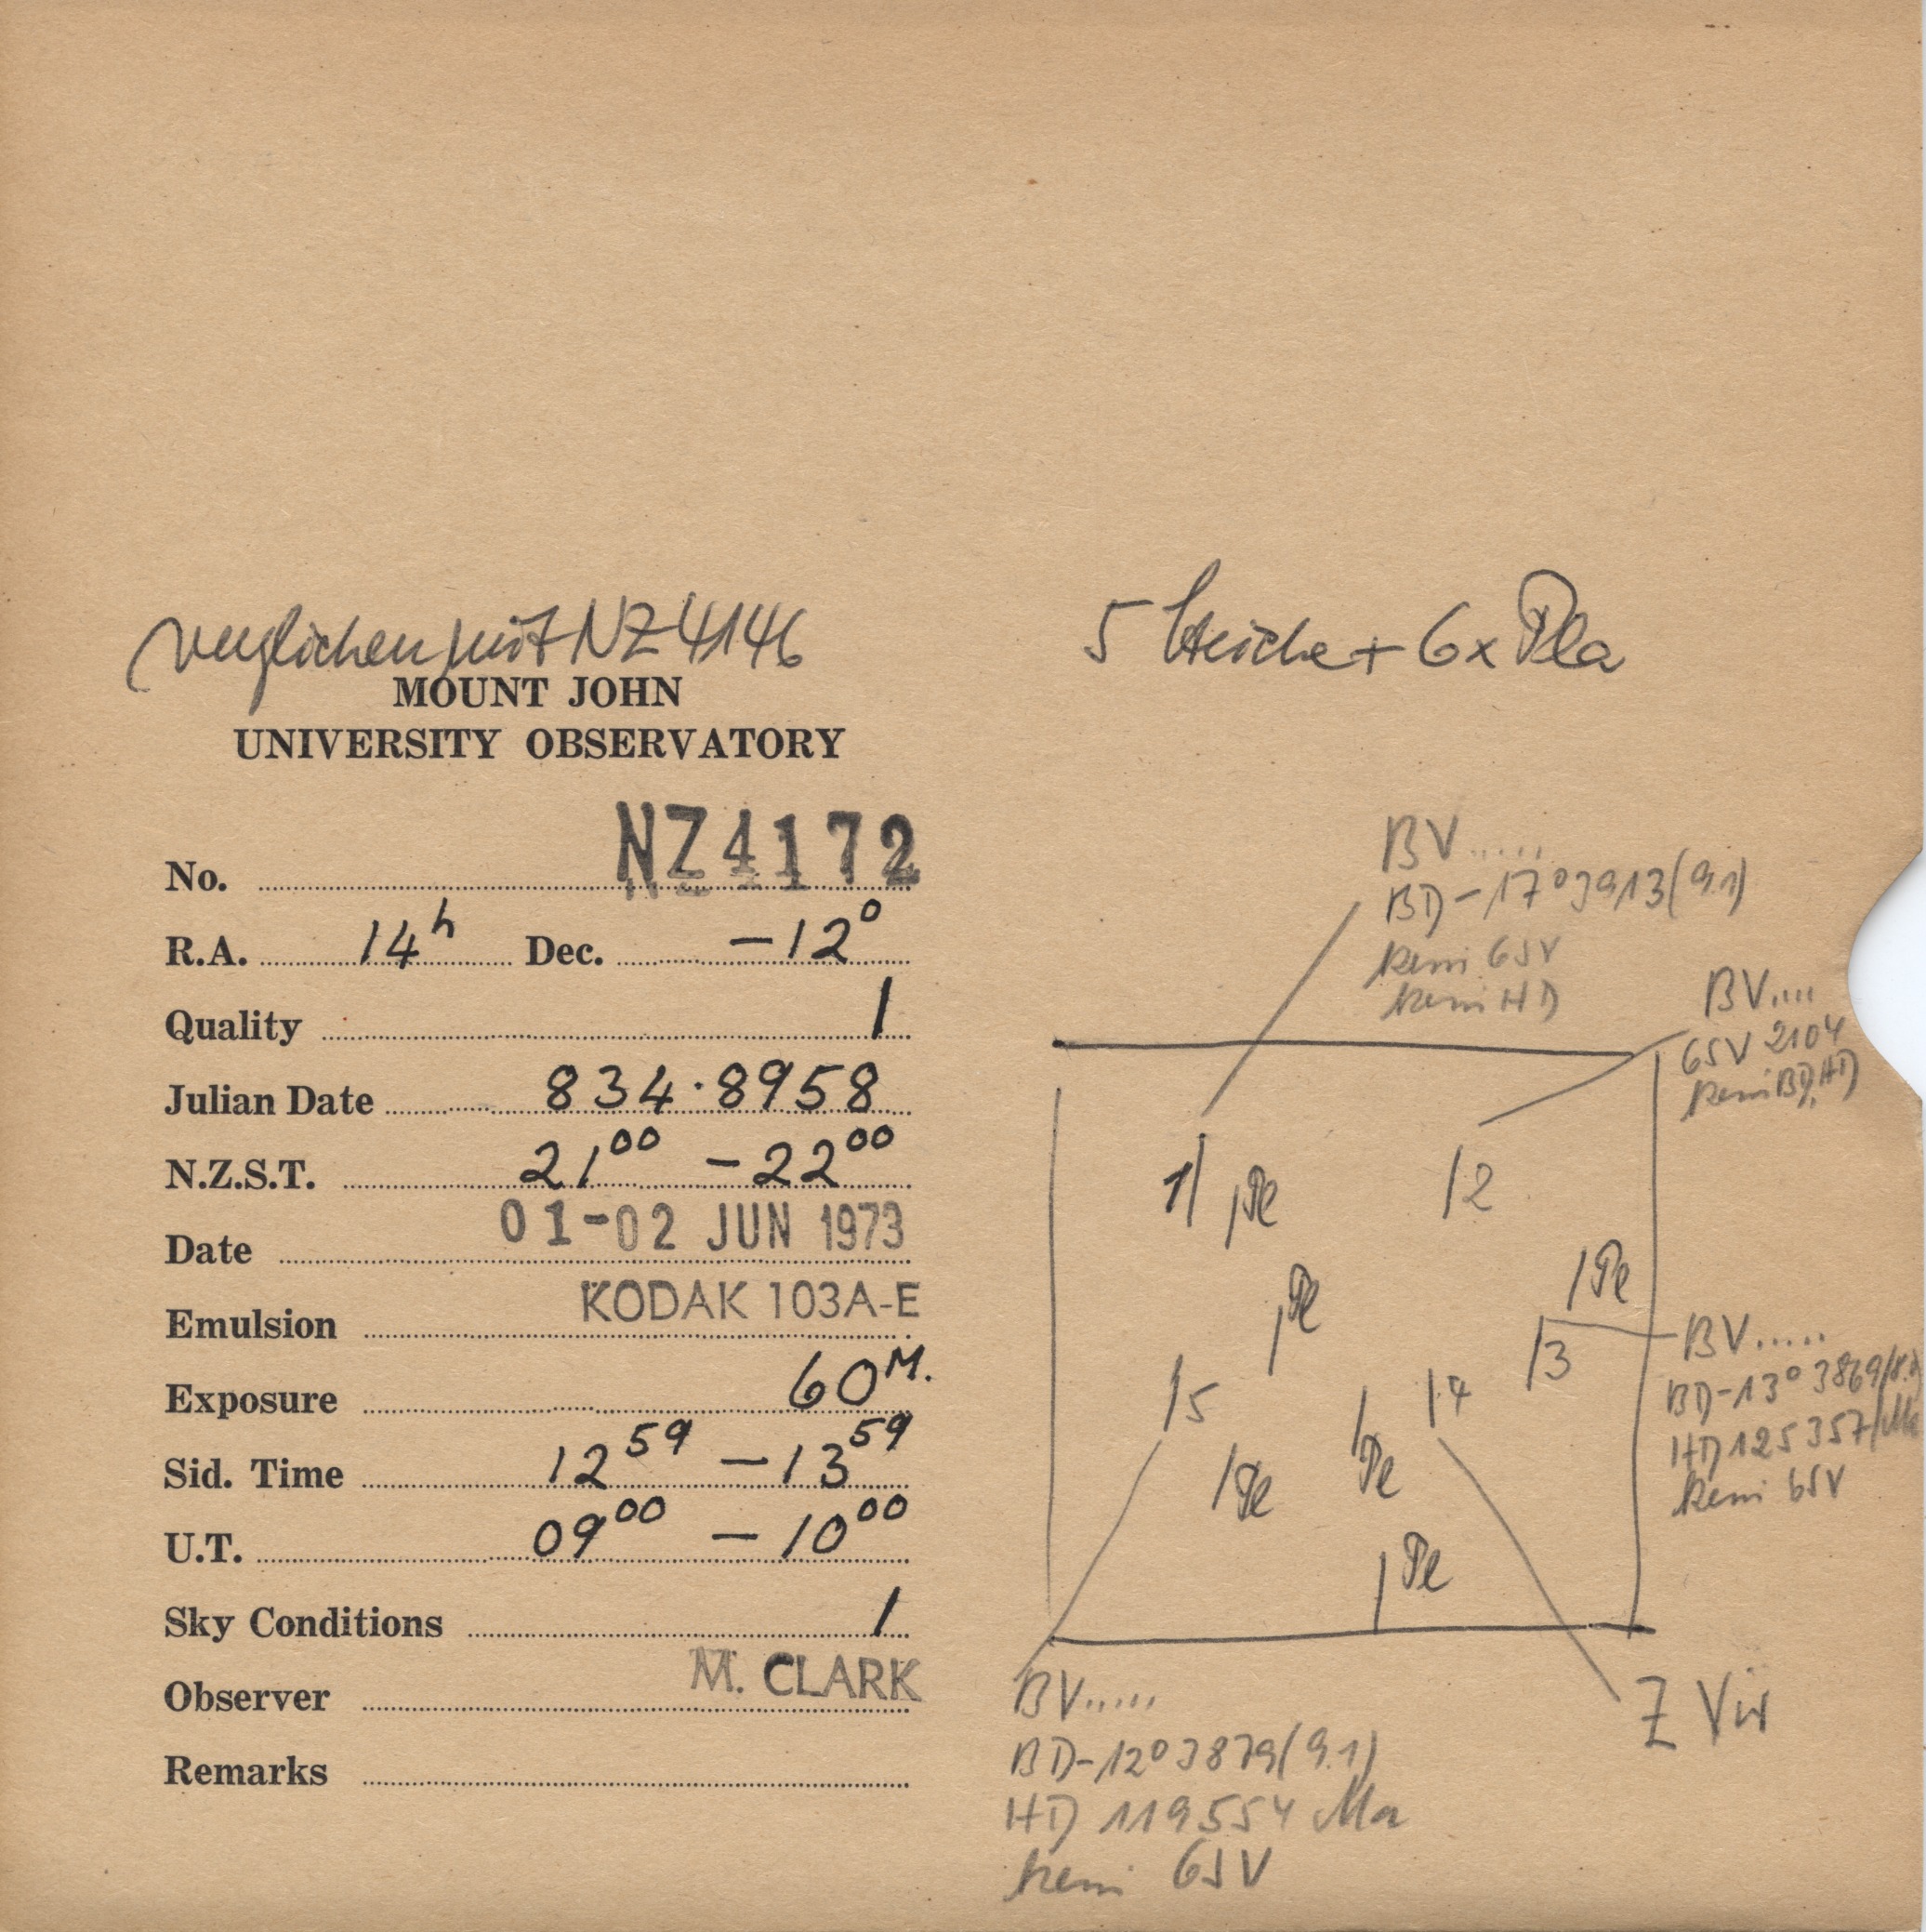 verglichen mit NZ 4146
5 Striche + 6x Pla
MOUNT JOHN
UNIVERSITY OBSERVATORY
No. NZ4172
R.A. 14h Dec. -12°
Quality 1
Julian Date 834.8958
N.Z.S.T. 21 00 - 22 00
Date 01-02 JUN 1973
Emulsion KODAK 103A-E
Exposure 60 M.
Sid. Time 12 59 - 13 59
U.T. 09 00 - 10 00
Sky Conditions 1
Observer M. CLARK
Remarks
BV.....
BD-17°3913(9.1)
kein GSV
kein HD
BV....
GSV 2104
kein BD, HD
1 Pl
2
Pl
Pl
3
BV.....
BD-13°3869
HD 125357/Ma
kein GSV
5
4
Pl
Pl
Pl
BV.....
BD-12°3879(9.1)
HD 119554 Ma
kein GSV
Z Vir